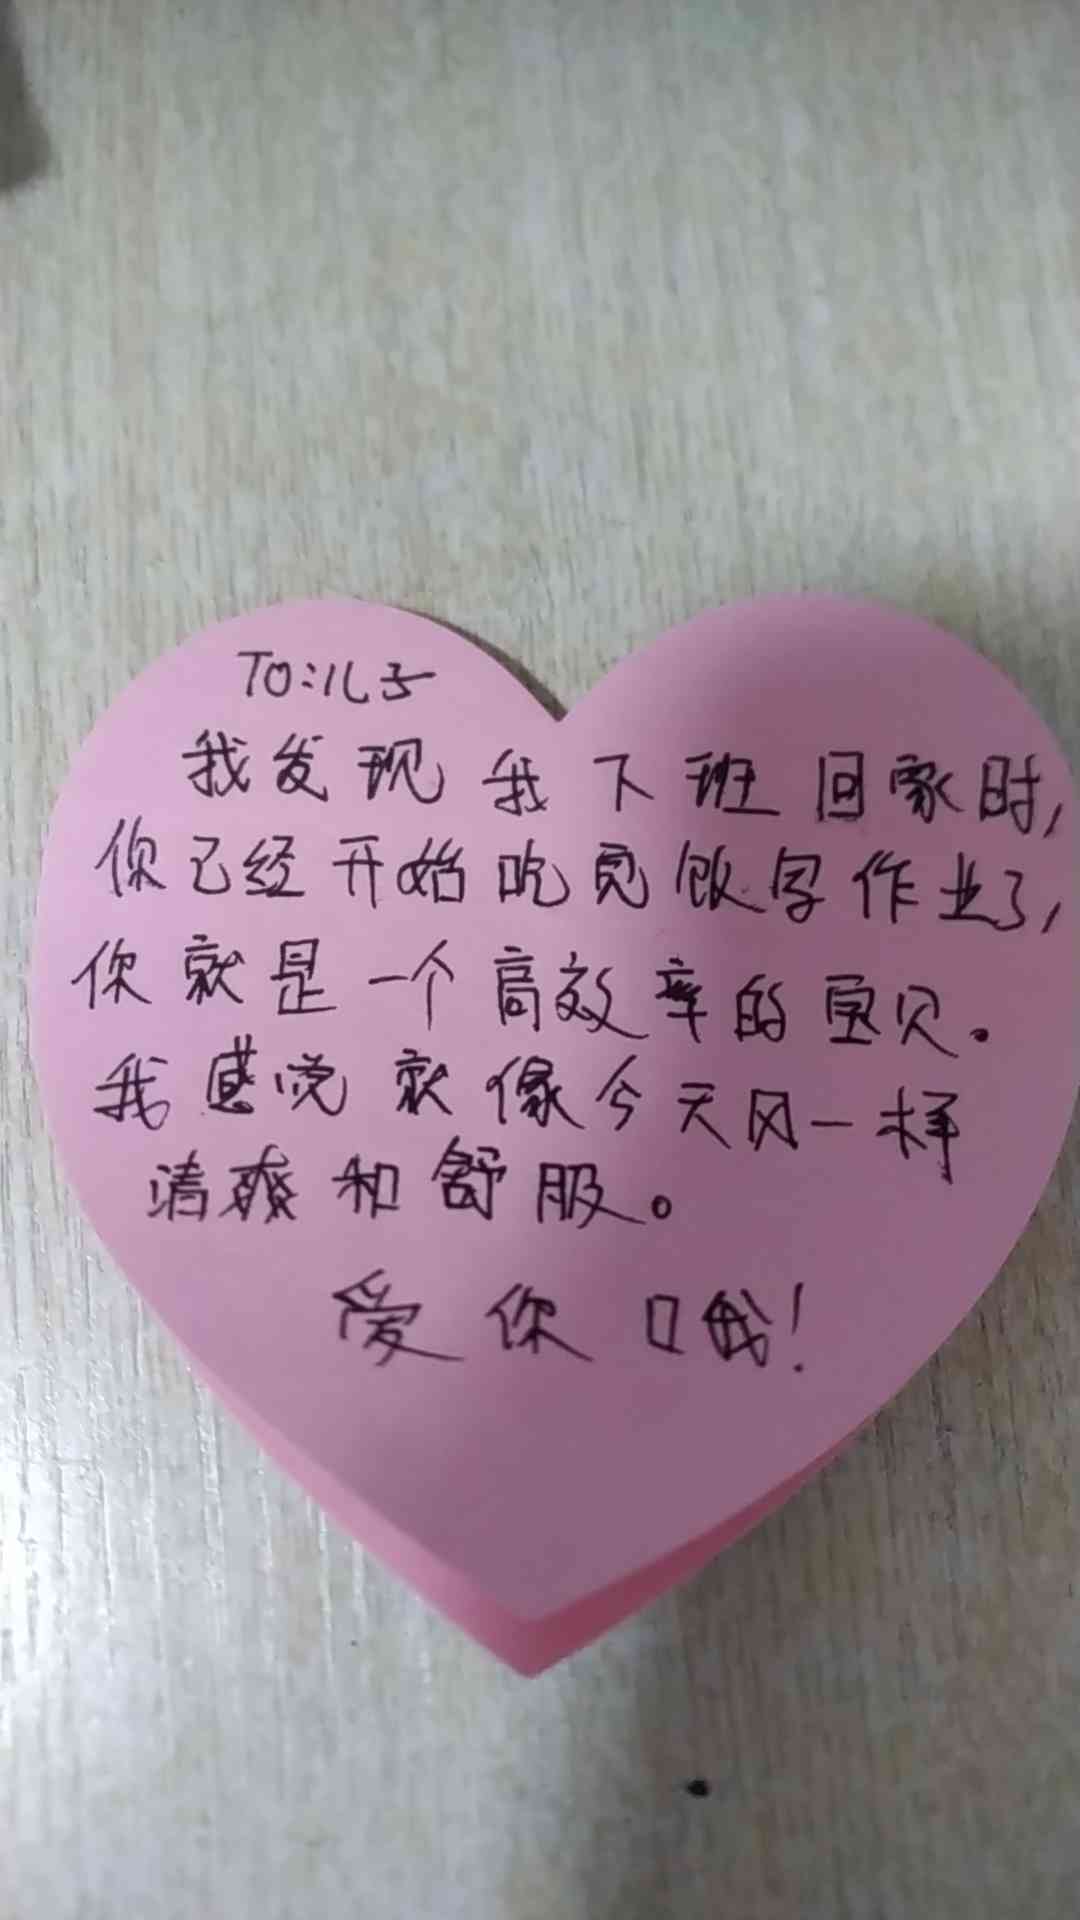 TO:儿子
我发现我下班回家时,
你已经开始吃完饭写作业了,
你就是一个高效率的宝贝。
我感觉就像今天风一样
清爽和舒服。
爱你哦!